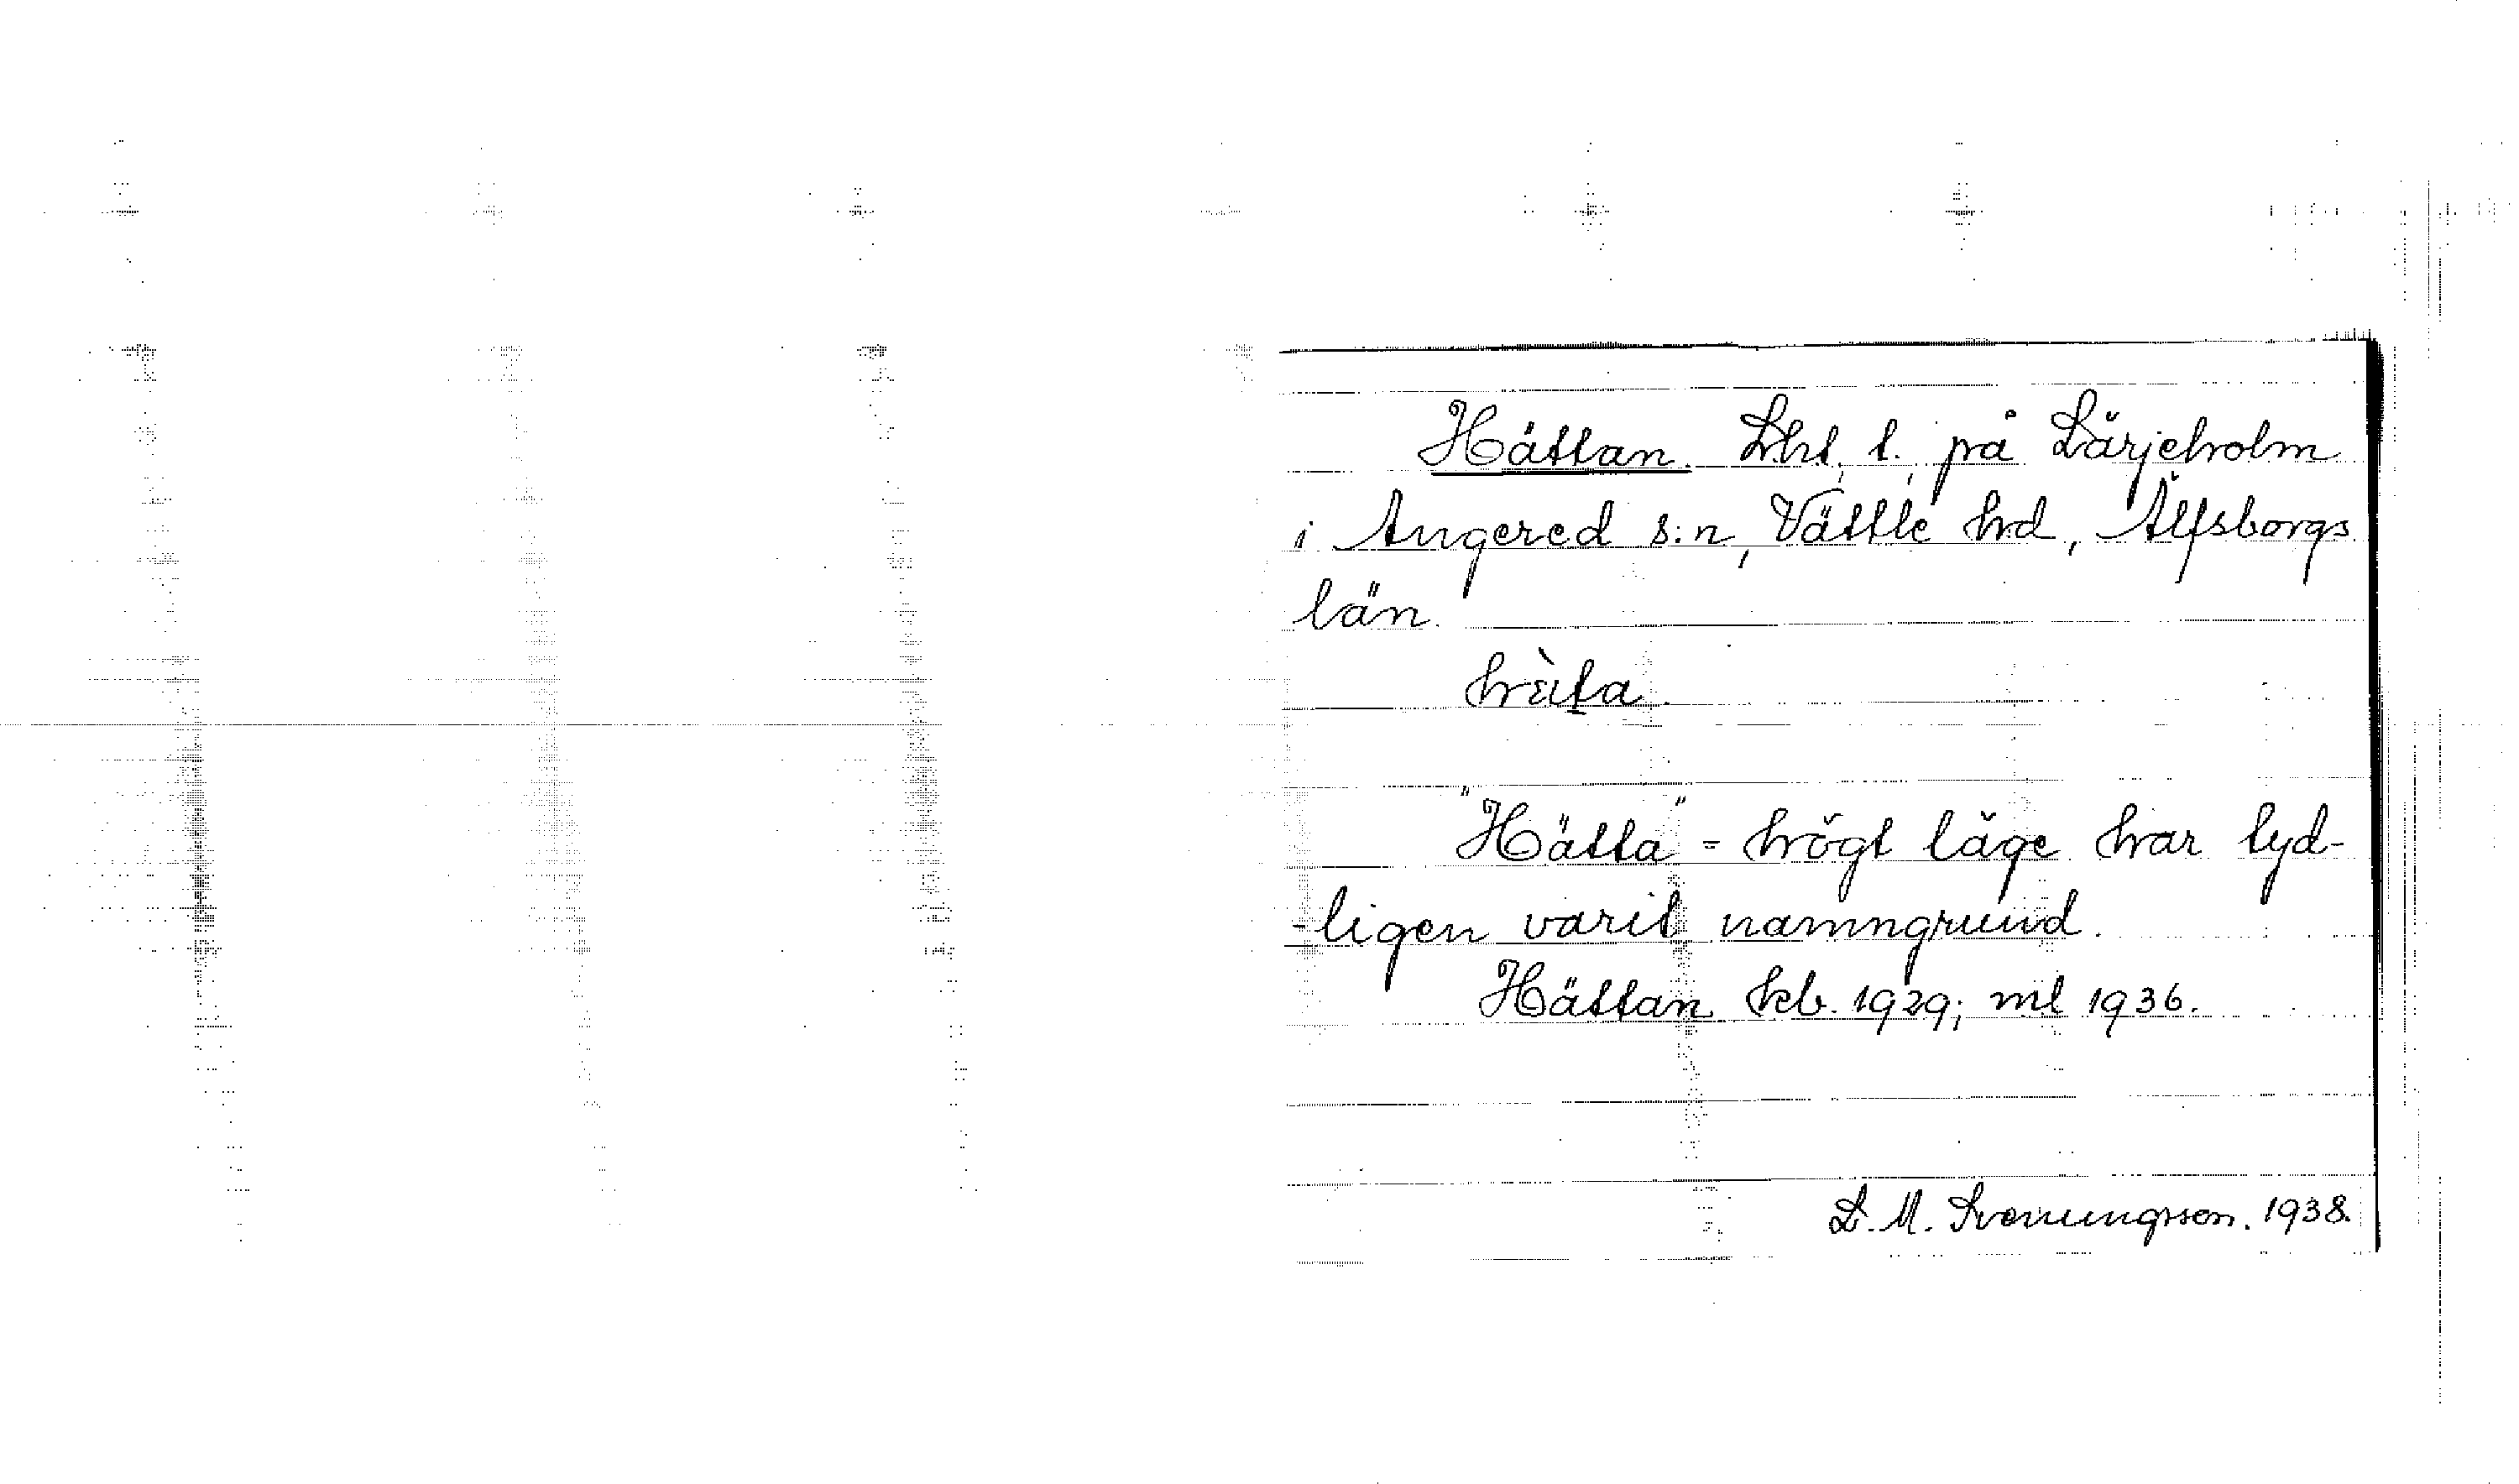 Hättan. Lht, t. på Lärjeholm
i Angered s:n, Vättle hd, Älfsborgs
län.
"Hätta" = högt läge har tyd-
-ligen varit namngrund.
Hättan kb. 1929; mt 1936.
L. M. Svenungsson. 1938.